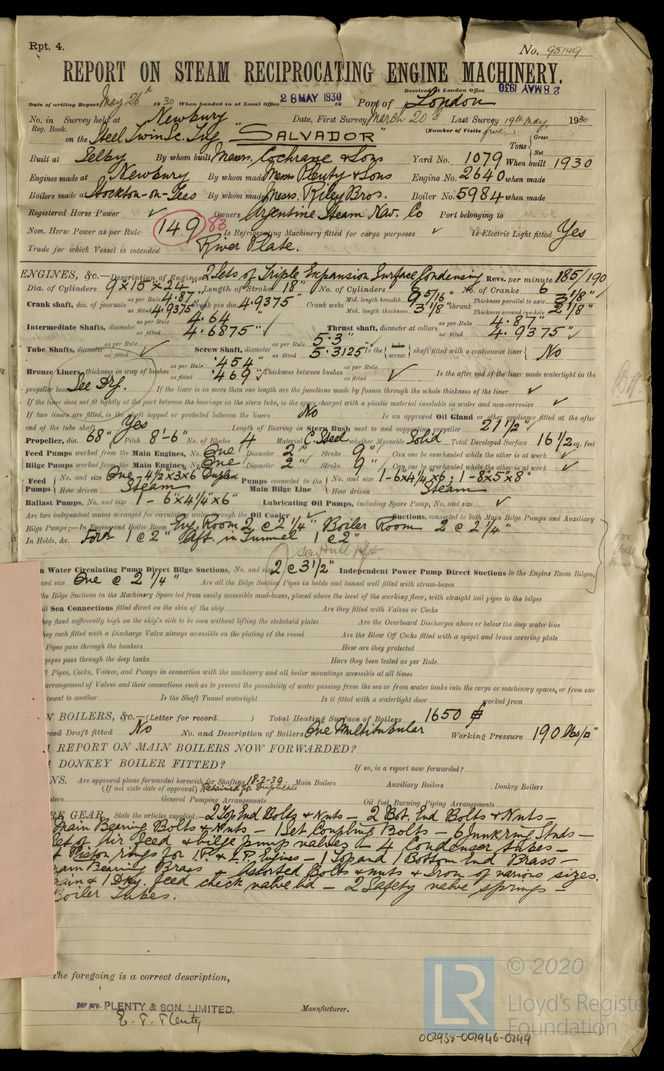 Rpt. 4.
No. 95149
REPORT ON STEAM RECIPROCATING ENGINE MACHINERY.
Received at London Office 28 MAY 1930
Date of writing Report May 26th 1930 When handed in at Local Office 28 MAY 1930 19 Port of London
No. in Survey held at Newbury Date, First Survey March 20th Last Survey 19th May 1930
Reg. Book. (Number of Visits five)
on the Steel Twin Sc. Tug "SALVADOR" Tons Gross Net
Built at Selby By whom built Messrs. Cochrane & Sons Yard No. 1079 When built 1930
Engines made at Newbury By whom made Messrs Plenty & Sons Engine No. 2640 when made
Boilers made at Stockton-on-Tees By whom made Messrs. Riley Bros. Boiler No. 5984 when made
Registered Horse Power Owners Argentine Steam Nav. Co Port belonging to
Nom. Horse Power as per Rule 149 83 Is Refrigerating Machinery fitted for cargo purposes Is Electric Light fitted Yes
Trade for which Vessel is intended River Plate.
ENGINES, &c.—Description of Engines 2 Sets of Triple Expansion Surface Condensing Revs. per minute 185/190
Dia. of Cylinders 9 x 15 x 24 Length of Stroke 18" No. of Cylinders 6 No. of Cranks 6
Crank shaft, dia. of journals as per Rule 4.87" as fitted 4.9375" Crank pin dia. 4.9375" Crank webs Mid. length breadth 9 5/16" Mid. length thickness 3 1/8" shrunk Thickness parallel to axis 3 1/8" Thickness around eye-hole 2 1/8"
Intermediate Shafts, diameter as per Rule 4.64 as fitted 4.6875" Thrust shaft, diameter at collars as per Rule 4.87" as fitted 4.9375"
Tube Shafts, diameter as per Rule as fitted Screw Shaft, diameter as per Rule 5.3" as fitted 5.3125 Is the screw shaft fitted with a continuous liner No
Bronze Liners, thickness in way of bushes as per Rule .454" as fitted .469" Thickness between bushes as per Rule as fitted Is the after end of the liner made watertight in the
propeller boss See P.f. If the liner is in more than one length are the junctions made by fusion through the whole thickness of the liner
If the liner does not fit tightly at the part between the bearings in the stern tube, is the space charged with a plastic material insoluble in water and non-corrosive
If two liners are fitted, is the shaft lapped or protected between the liners No Is an approved Oil Gland or other appliance fitted at the after
end of the tube shaft Yes Length of Bearing in Stern Bush next to and supporting propeller 21 1/2"
Propeller, dia. 68" Pitch 8'-6" No. of Blades 4 Material C. Steel whether Moveable Solid Total Developed Surface 16 1/2 sq. feet
Feed Pumps worked from the Main Engines, No. One Diameter 2" Stroke 9" Can one be overhauled while the other is at work
Bilge Pumps worked from the Main Engines, No. One Diameter 2" Stroke 9" Can one be overhauled while the other is at work
Feed Pumps No. and size One - 4 1/2 x 3 x 6 Duplex How driven Steam Pumps connected to the Main Bilge Line No. and size 1-6 x 4 1/4 x 6; 1-8 x 5 x 8" How driven Steam
Ballast Pumps, No. and size 1 - 6" x 4 1/4" x 6" Lubricating Oil Pumps, including Spare Pump, No. and size
Are two independent means arranged for circulating water through the Oil Cooler Suctions, connected to both Main Bilge Pumps and Auxiliary
Bilge Pumps;—In Engine and Boiler Room Eng. Room 2 @ 2 1/4" Boiler Room 2 @ 2 1/4"
In Holds, &c. Ford 1 @ 2" Aft. in Tunnel 1 @ 2"
n Water Circulating Pump Direct Bilge Suctions, No. and size 2 @ 3 1/2" Independent Power Pump Direct Suctions to the Engine Room Bilges,
nd size One @ 2 1/4" Are all the Bilge Suction Pipes in holds and tunnel well fitted with strum-boxes
he Bilge Suctions in the Machinery Space led from easily accessible mud-boxes, placed above the level of the working floor, with straight tail pipes to the bilges
ll Sea Connections fitted direct on the skin of the ship Are they fitted with Valves or Cocks
hey fixed sufficiently high on the ship's side to be seen without lifting the stokehold plates Are the Overboard Discharges above or below the deep water line
hey each fitted with a Discharge Valve always accessible on the plating of the vessel Are the Blow Off Cocks fitted with a spigot and brass covering plate
Pipes pass through the bunkers How are they protected
pipes pass through the deep tanks Have they been tested as per Rule
ll Pipes, Cocks, Valves, and Pumps in connection with the machinery and all boiler mountings accessible at all times
arrangement of Valves and their connections such as to prevent the possibility of water passing from the sea or from water tanks into the cargo or machinery spaces, or from one
tment to another Is the Shaft Tunnel watertight Is it fitted with a watertight door worked from
N BOILERS, &c.—(Letter for record ) Total Heating Surface of Boilers 1650
ced Draft fitted No No. and Description of Boilers One Multitubular Working Pressure 190 lbs/□"
A REPORT ON MAIN BOILERS NOW FORWARDED?
A DONKEY BOILER FITTED? If so, is a report now forwarded?
NS. Are approved plans forwarded herewith for Shafting 18-2-30 Main Boilers Auxiliary Boilers Donkey Boilers
(If not state date of approval) Retained for Duplicate
General Pumping Arrangements Oil fuel Burning Piping Arrangements
RE GEAR. State the articles supplied:— 2 Top End Bolts & Nuts — 2 Bot. End Bolts & Nuts —
Main Bearing Bolts & Nuts — 1 Set Coupling Bolts — 6 Junk ring Studs —
Set of Air feed & bilge pump valves — 4 Condenser tubes —
Piston rings for I.P. & L.P. Engines — 1 Top and 1 Bottom End Brass —
Main Bearing Brass + Assorted Bolts & nuts & Iron of various sizes.
Main & 1 Dky. feed check valve lid — 2 Safety valve springs —
Boiler Tubes.
The foregoing is a correct description,
per pro. PLENTY & SON, LIMITED. Manufacturer.
E. P. Plenty
LR © 2020
Lloyd's Register
Foundation
002938-002946-0249